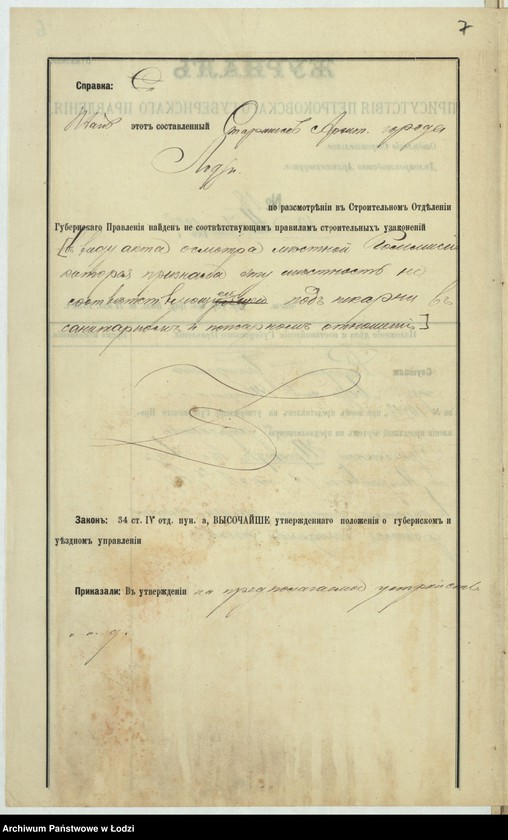 7
Справка:
Планъ этотъ составленный Старшимъ Архит. города
Лодзи.
по разсмотрѣніи въ Строительномъ Отдѣленіи
Губернскаго Правленія найденъ не соотвѣтствующимъ правиламъ строительныхъ узаконеній
[въ виду акта осмотра мѣстной Коммисіи
которая признала эту мѣстность не
соотвѣтствующей подъ пекарни въ
санитарномъ и пожарномъ отношеніи]
Законъ: 34 ст. IV отд. пун. а, ВЫСОЧАЙШЕ утвержденнаго положенія о губернскомъ и
уѣздномъ управленіи
Приказали: Въ утвержденіи на предполагаемое устройство
Archiwum Państwowe w Łodzi